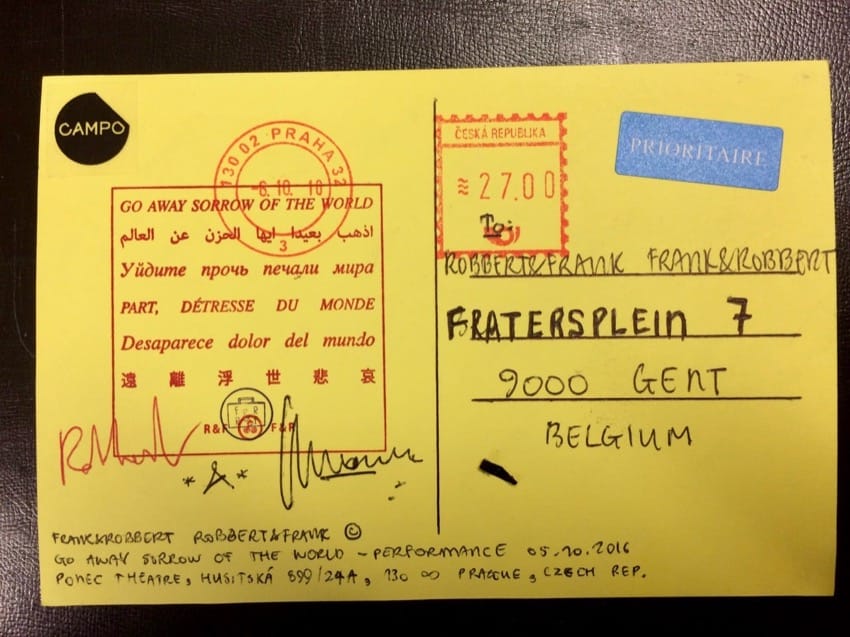 CAMPO
130 02 PRAHA 32
-6.10.16
3
GO AWAY SORROW OF THE WORLD
اذهب بعيدا ايها الحزن عن العالم
Уйдите прочь печали мира
PART, DÉTRESSE DU MONDE
Desaparece dolor del mundo
遠離浮世悲哀
F R
R&F F&R
*&*
FRANK&ROBBERT ROBBERT&FRANK ©
GO AWAY SORROW OF THE WORLD - PERFORMANCE 05.10.2016
PONEC THEATRE, HUSITSKÁ 899/24A, 130 00 PRAGUE, CZECH REP.
ČESKÁ REPUBLIKA
≋27.00
PRIORITAIRE
To:
ROBBERT&FRANK FRANK&ROBBERT
FRATERSPLEIN 7
9000 GENT
BELGIUM